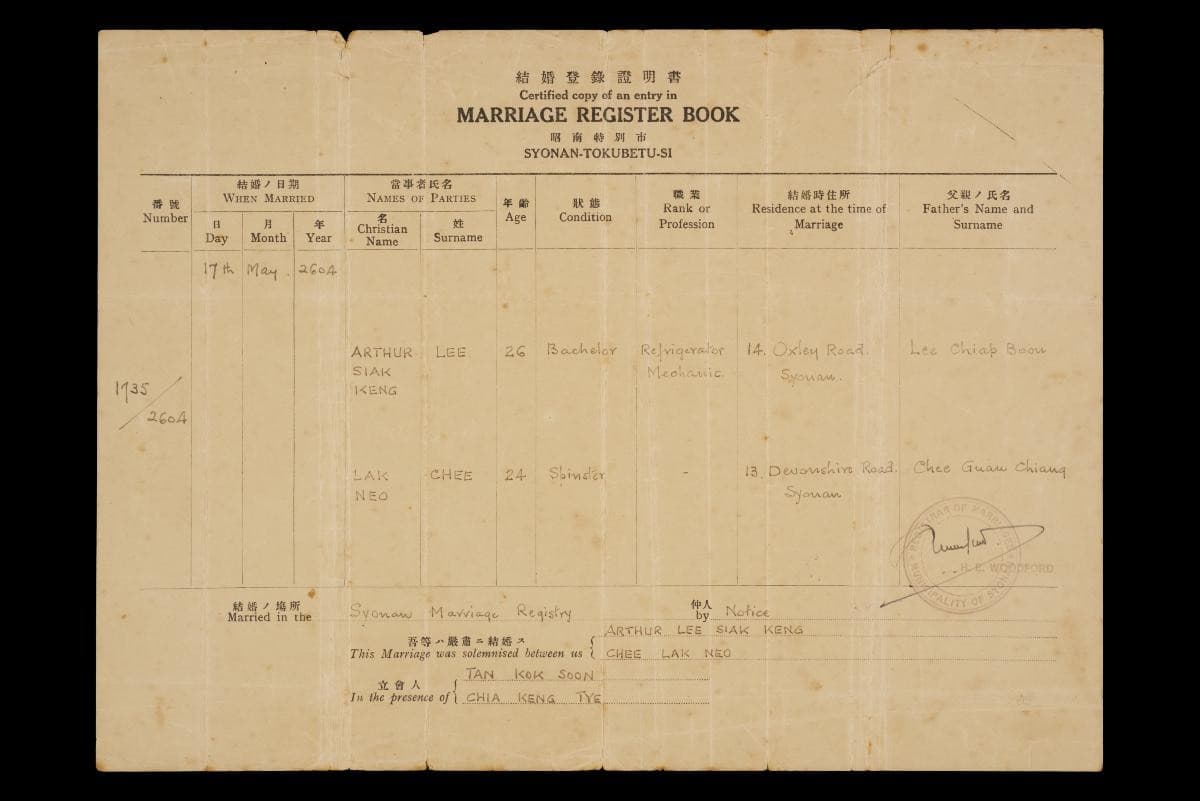 結婚登錄證明書
Certified copy of an entry in
MARRIAGE REGISTER BOOK
昭南特別市
SYONAN-TOKUBETU-SI
番號
Number
結婚ノ日期
WHEN MARRIED
日
Day
月
Month
年
Year
當事者氏名
NAMES OF PARTIES
名
Christian
Name
姓
Surname
年齡
Age
狀態
Condition
職業
Rank or
Profession
結婚時住所
Residence at the time of
Marriage
父親ノ氏名
Father's Name and
Surname
17th May. 2604
1735
/2604
ARTHUR LEE 26 Bachelor Refrigerator 14. Oxley Road. Lee Chiap Boon
SIAK Mechanic. Syonan.
KENG
LAK CHEE 24 Spinster - 13. Devonshire Road. Chee Guan Chiang
NEO Syonan
REGISTRAR OF MARRIAGES
MUNICIPALITY OF SYONAN
H. E. WOODFORD
結婚ノ場所
Married in the Syonan Marriage Registry
仲人
by Notice
吾等ハ嚴肅ニ結婚ス
This Marriage was solemnised between us { ARTHUR LEE SIAK KENG
CHEE LAK NEO
立會人
In the presence of { TAN KOK SOON
CHIA KENG TYE